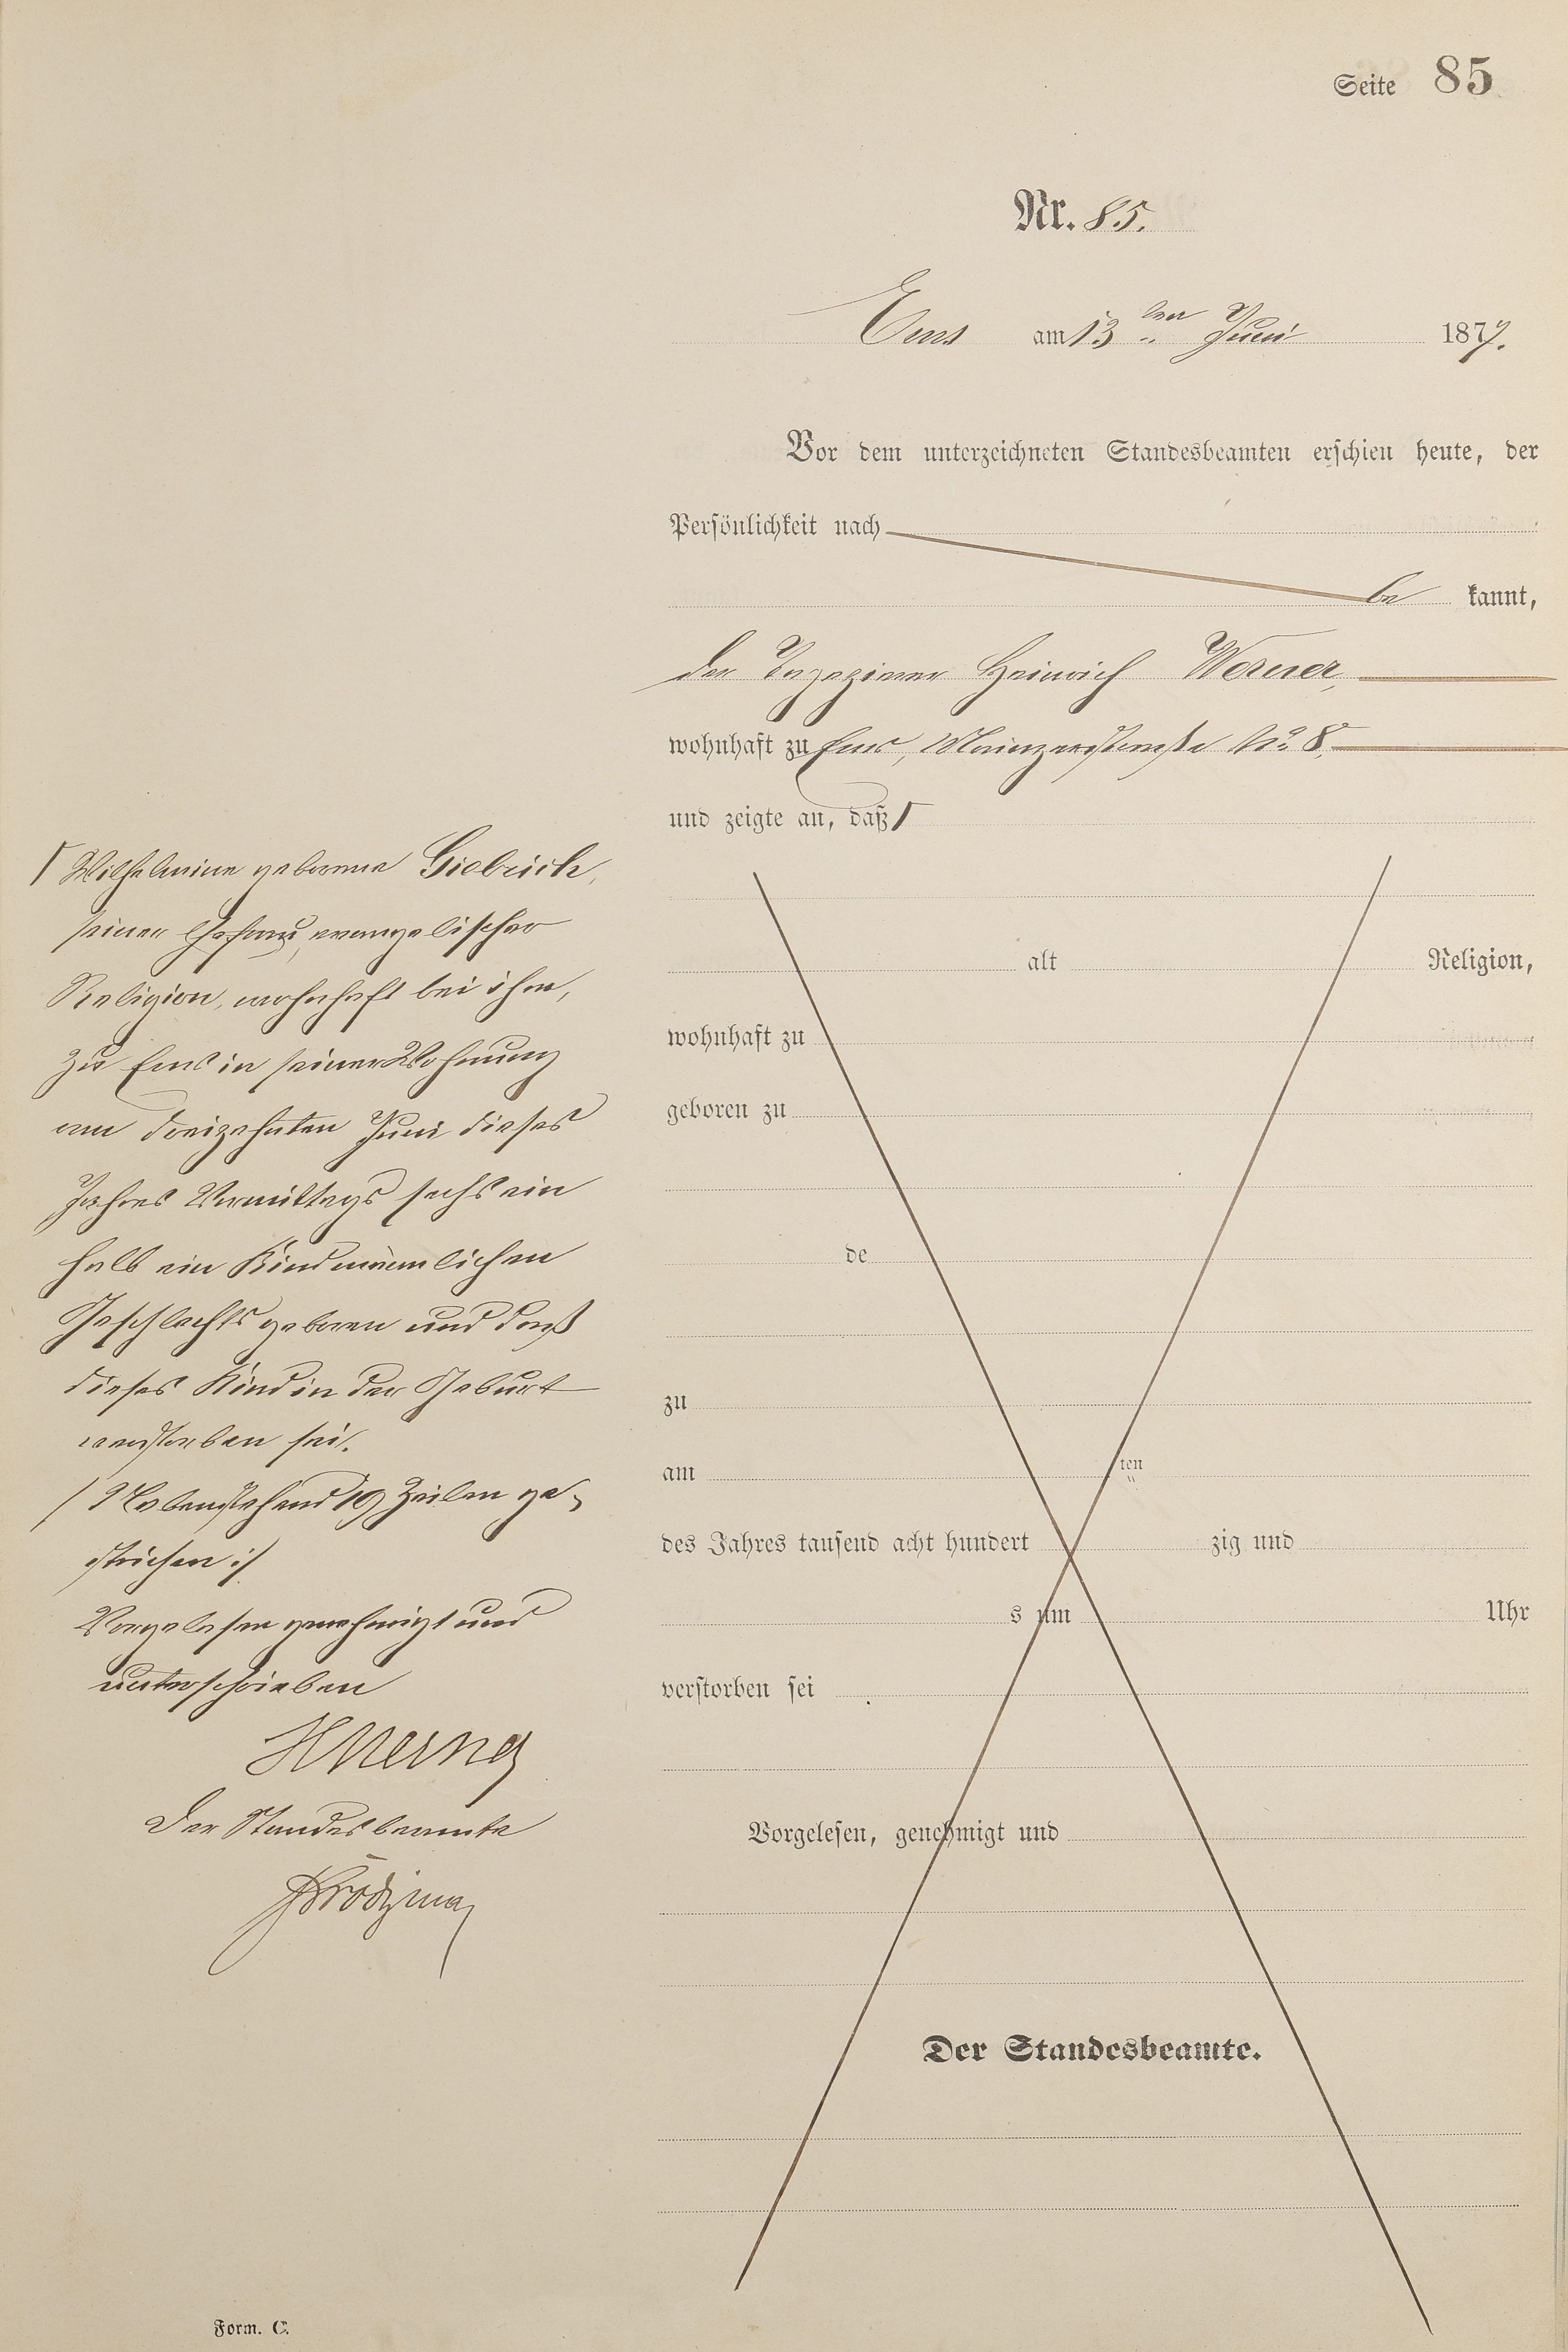 Seite 85
Nr. 85.
Ems am 13 ten Juni 1877.
Vor dem unterzeichneten Standesbeamten erschien heute, der
Persönlichkeit nach
be kannt,
der Heinrich Werner,
wohnhaft zu Ems, Mainzerstraße No 8.
und zeigte an, daß Γ
alt Religion,
wohnhaft zu
geboren zu
de
zu
am ten
des Jahres tausend acht hundert zig und
s um Uhr
verstorben sei
Vorgelesen, genehmigt und
Der Standesbeamte.
Γ Wilhelmine geborene Giebrich,
seiner Ehefrau, evangelischer
Religion, wohnhaft bei ihm,
zu Ems in seiner Wohnung
am dreizehnten Juni dieses
Jahres Vormittags sechs ein
halb ein Kind männlichen
Geschlechts geboren und daß
dieses Kind in der Geburt
verstorben sei.
/ Nebenstehend 19 Zeilen ge-
strichen :/
Vorgelesen genehmigt und
unterschrieben
H Werner
Der Standesbeamte
Form. C.